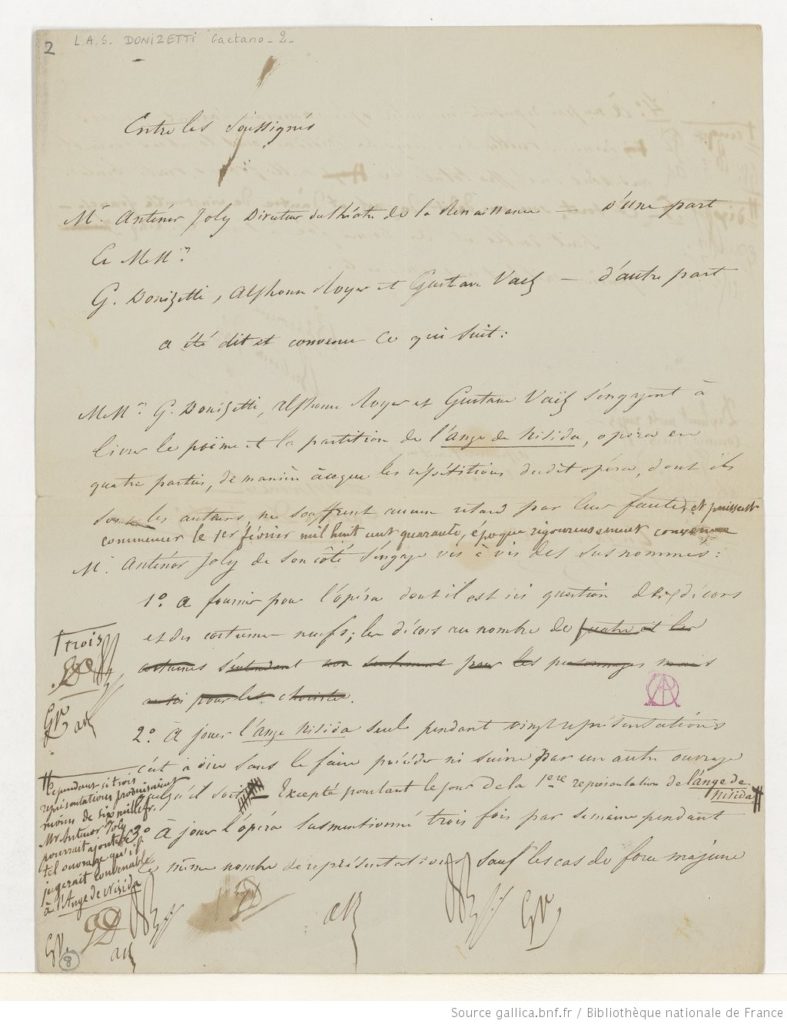 2
L.A.S. DONIZETTI Gaetano - 2 -
Entre les Soussignés
Mr. Anténor Joly Directeur du théâtre de la Renaissance — d'une part
Et MeMrs
G. Donizetti, Alphonse Royer et Gustave Vaëz — d'autre part
a été dit et convenu ce qui suit:
MeMrs G. Donizetti, Alphonse Royer et Gustave Vaëz s'engagent à
livrer le poëme et la partition de l'Ange de Nisida, opéra en
quatre parties, de manière à ce que les répétitions dudit opéra, dont ils
sont les auteurs, ne souffrent aucun retard par leur faute, et puissent
commencer le 1er février mil huit cent quarante, époque rigoureusement convenue
Mr. Anténor Joly de son côté s'engage vis à vis des susnommés:
1o. A fournir pour l'opéra dont il est ici question des décors
et des costumes neufs; les décors au nombre de quatre et les
costumes s'entendent non seulement pour les personnages mais
aussi pour les choristes.
trois
GD
GV aR
2o. A jouer l'ange Nisida seule pendant vingt représentations
c'est à dire sans le faire précéder ni suivre par un autre ouvrage
quel qu'il soit # Excepté pourtant le jour de la 1ere représentation de l'ange de
Nisida #
3o. A jouer l'opéra susmentionné trois fois par semaine pendant
le même nombre de représentations sauf les cas de force majeure
# Cependant si trois
représentations produisaient
moins de six mille f.
Mr. Antenor Joly
pourrait ajouter
tel ouvrage qu'il
jugerait convenable
à l'Ange de Nisida
GD
GV aR
GD aR GV
8
Source gallica.bnf.fr / Bibliothèque nationale de France